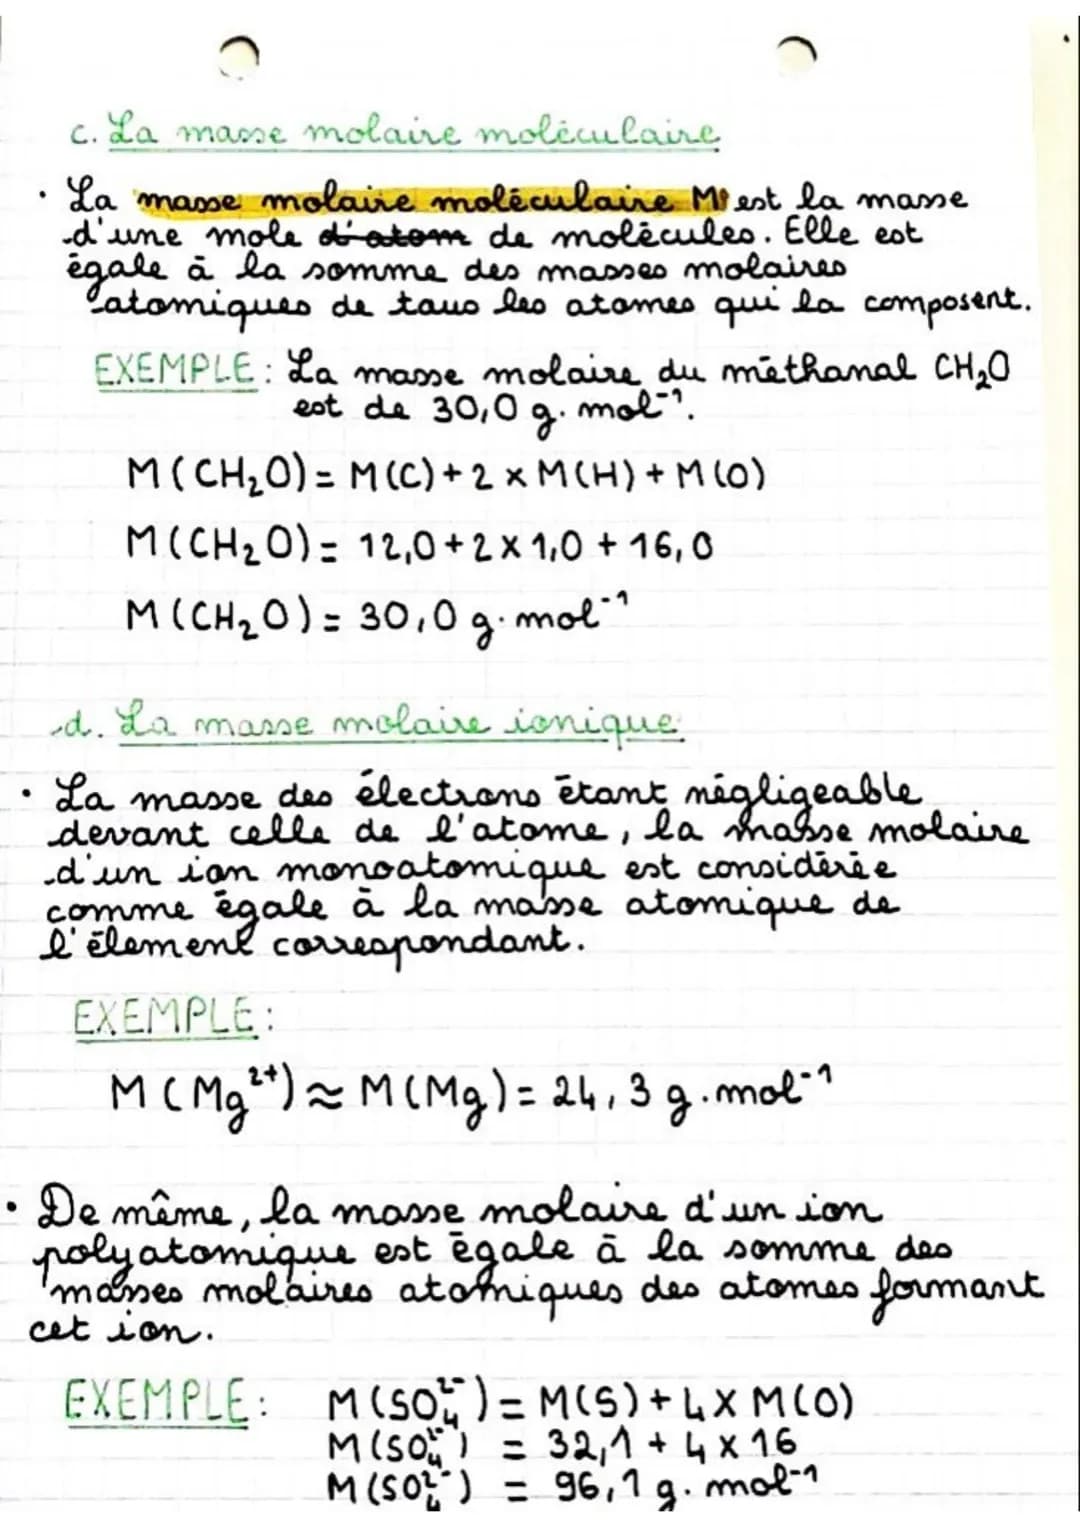 c. La masse molaire moléculaire
• La masse molaire moléculaire M est la masse
d'une mole d'atom de molécules. Elle est
égale à la somme des masses molaires
atomiques de tous les atomes qui la composent.
EXEMPLE : La masse molaire du méthanal CH₂O
est de 30,0 g. mol⁻¹.
M(CH₂O) = M(C) + 2 × M(H) + M(O)
M(CH₂O) = 12,0 + 2 × 1,0 + 16,0
M(CH₂O) = 30,0 g. mol⁻¹
d. La masse molaire ionique
• La masse des électrons étant négligeable
devant celle de l'atome, la masse molaire
d'un ion monoatomique est considérée
comme égale à la masse atomique de
l'élement correspondant.
EXEMPLE :
M(Mg²⁺) ≈ M(Mg) = 24,3 g. mol⁻¹
• De même, la masse molaire d'un ion
polyatomique est égale à la somme des
masses molaires atomiques des atomes formant
cet ion.
EXEMPLE : M(SO₄²⁻) = M(S) + 4 × M(O)
M(SO₄²⁻) = 32,1 + 4 × 16
M(SO₄²⁻) = 96,1 g. mol⁻¹